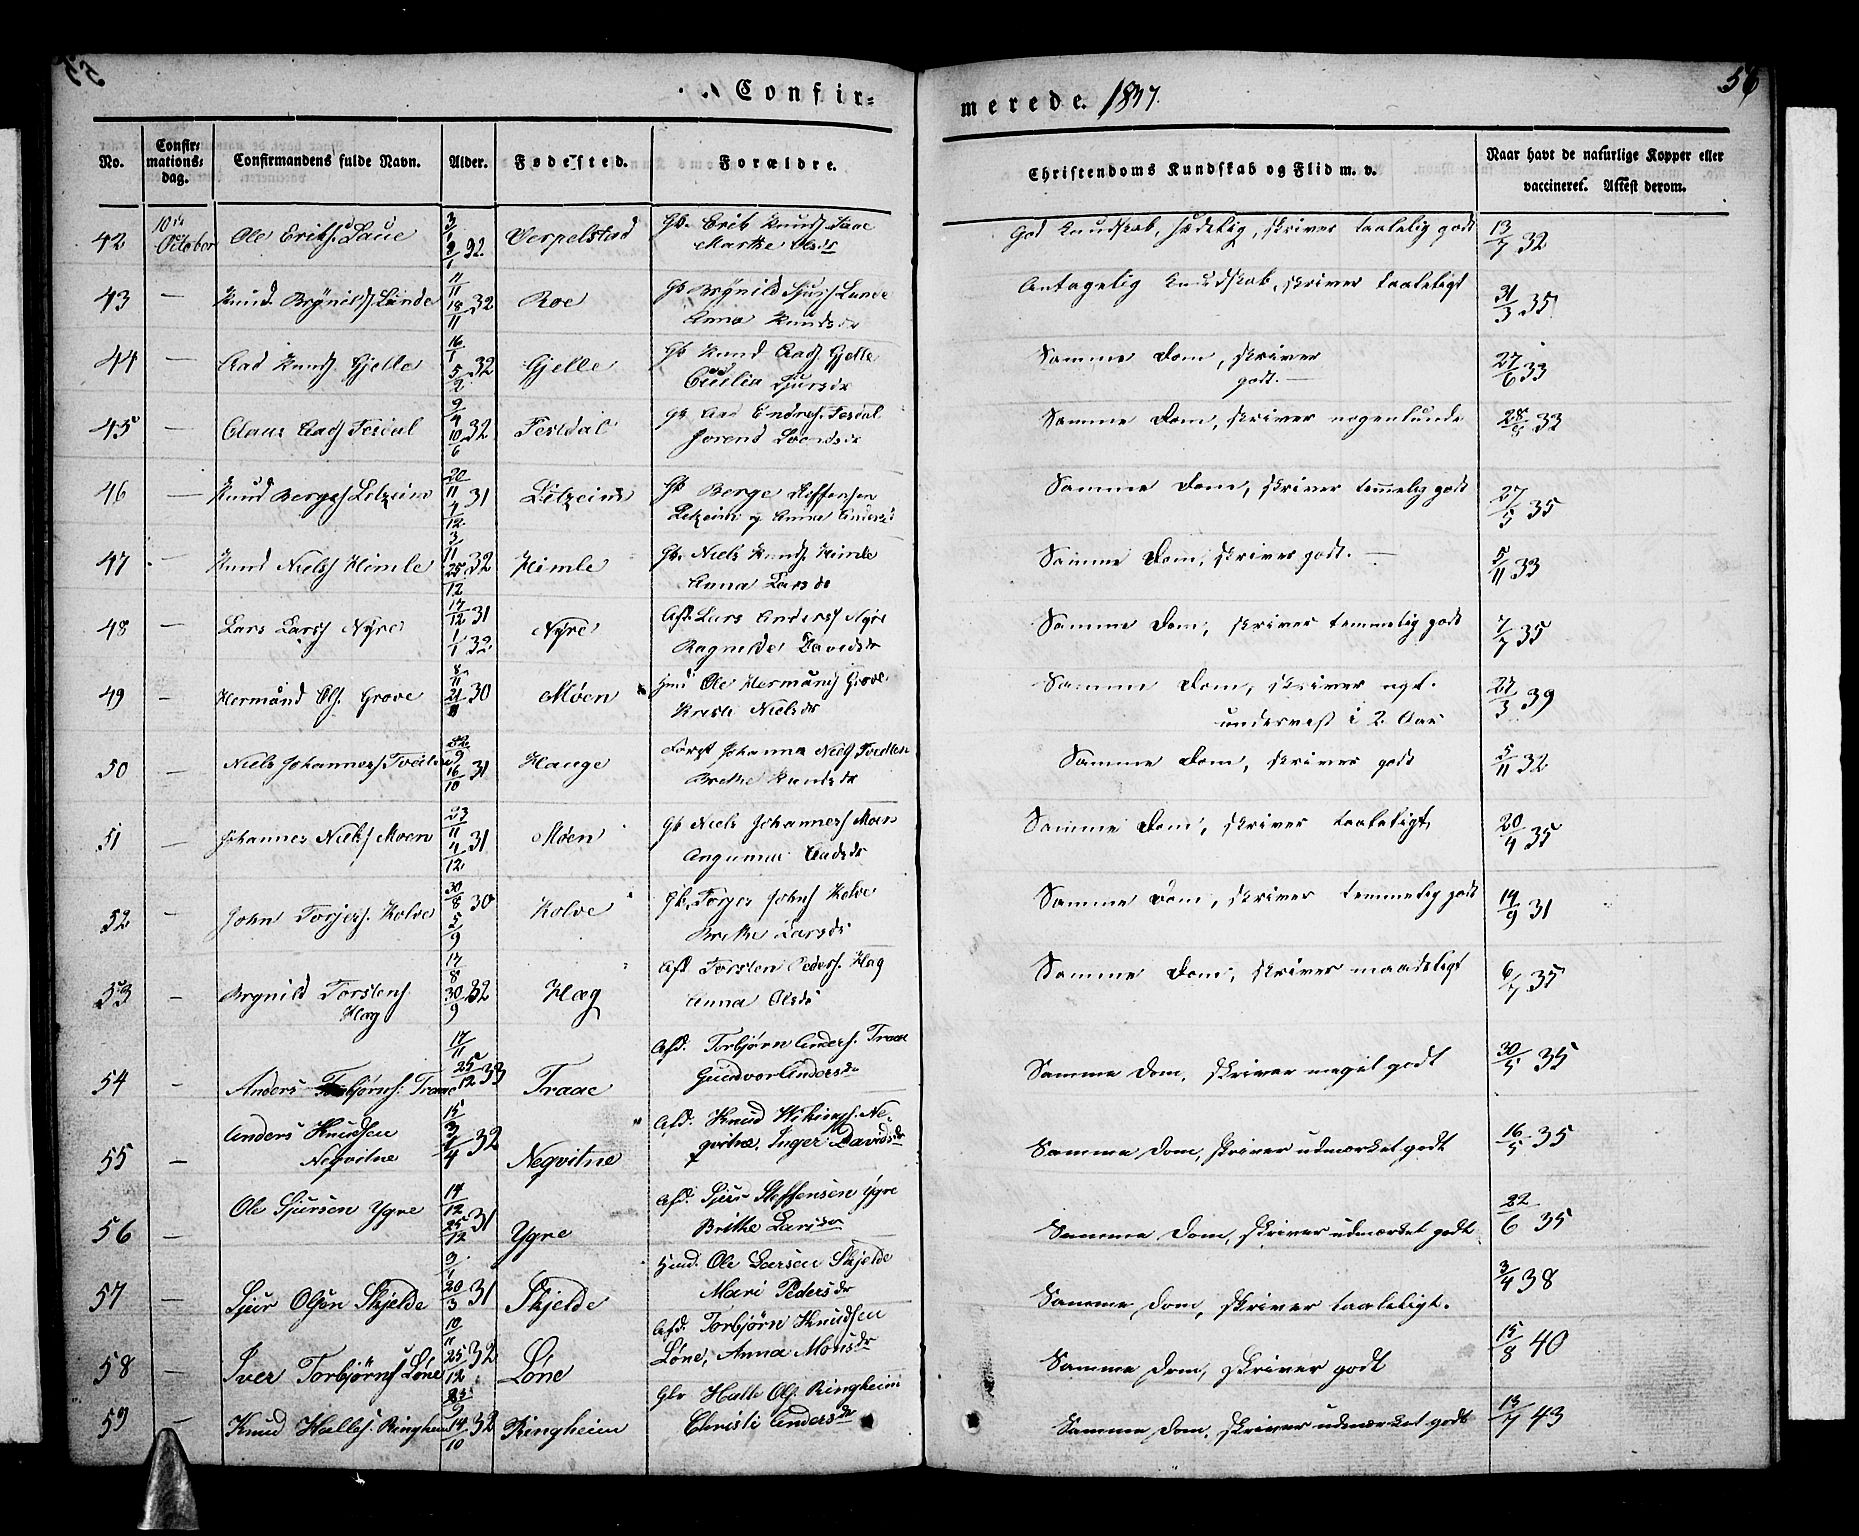 Confirmerede. 1847.
56
No.
Confirmationsdag.
Confirmandens fulde Navn.
Alder.
Fødested.
Forældre.
Christendoms Kundskab og Flid m. v.
Naar havt de naturlige Kopper eller vaccineret. Attest derom.
42 October Ole Eriks. 32 Gb. Erik Knuds. God Kundskab, sædelig, skriver taalelig godt 13/7 32
43 — Knud Brynilds. Lunde 11/11 18/11 32 Roe Gb Brynild Sjurs. Lunde Anna Knudsdr Antagelig Kundskab, skriver taaleligt 31/3 35
44 — Knuds. Gjelle 16/1 5/2 32 Gjelle Gb Knud Gjelle Sjursdr Samme Dom, skriver godt. — 27/6 33
45 — Claus 9/4 10/6 32 Gb Endres. Samme Dom, skriver nogenlunde 28/8 33
46 — Knud Berges. 20/11 4/12 31 Gb Berge Steffensen og Anna Samme Dom, skriver temmelig godt 27/5 35
47 — Knud Niels. Himle 3/11 25/12 32 Himle Gb. Niels Knuds. Himle Anna Larsdr Samme Dom, skriver godt. — 5/11 33
48 — Lars Lars. Nyre 17/12 31 1/1 32 Nyre Afd. Lars Anders. Nyre Ragnilde Davidsdr Samme Dom, skriver temmelig godt 7/7 35
49 — Hermund Ols. Grove 8/11 21/11 30 Møen Hmd Ole Hermunds. Grove Nielsdr Samme Dom, skriver underviist i 2 Aar 27/3 39
50 — Niels Johannes. 16/10 31 Hauge Niels. Brithe Knudsdr Samme Dom, skriver godt 5/11 32
51 — Johannes Niels. Moen 23/11 4/12 31 Møen Gb Niels Johannes. Moen Samme Dom, skriver taaleligt, 20/4 35
52 — John Torjers. Kolve 30/8 5/9 30 Kolve Gb. Torjer Johns. Kolve Brithe Larsdr Samme Dom, skriver temmelig godt 19/9 31
53 — Brynild Torstens. Hæg 17/8 30/9 32 Hæg Afd Torsten Peders. Hæg Anna Olsdr Samme Dom, skriver maadeligt 6/7 35
54 Anders Torbjørns. Traae 17/11 25/12 33 Traae Afd. Torbjørn Anders. Traae Gundvor Andersdr Samme Dom, skriver meget godt 30/5 35
55 — Anders Knudsen Negvitne 15/3 4/4 32 Negvitne Afd. Knud Negvitne, Inger Davidsdr Samme Dom, skriver udmærket godt 16/5 35
56 — Ole Sjursen Ygre 14/12 25/12 31 Ygre Afd. Sjur Steffensen Ygre Brithe Larsdr Samme Dom, skriver udmærket godt 22/6 35
57 — Sjur Olsen Skjelde 3/1 20/3 31 Skjelde Hmd. Ole Larsen Skjelde Mari Pedersdr Samme Dom, skriver taaleligt. 3/4 38
58 — Iver Torbjørns. Løne 10/11 25/12 32 Løne Afd. Torbjørn Knudsen Løne, Anna Monsdr Samme Dom, skriver godt 15/8 40
59 — Knud Halles. Ringheim 23/9 14/10 32 Ringheim Halle Ols. Ringheim Christi Andersdr Samme Dom, skriver udmærket godt 13/7 43